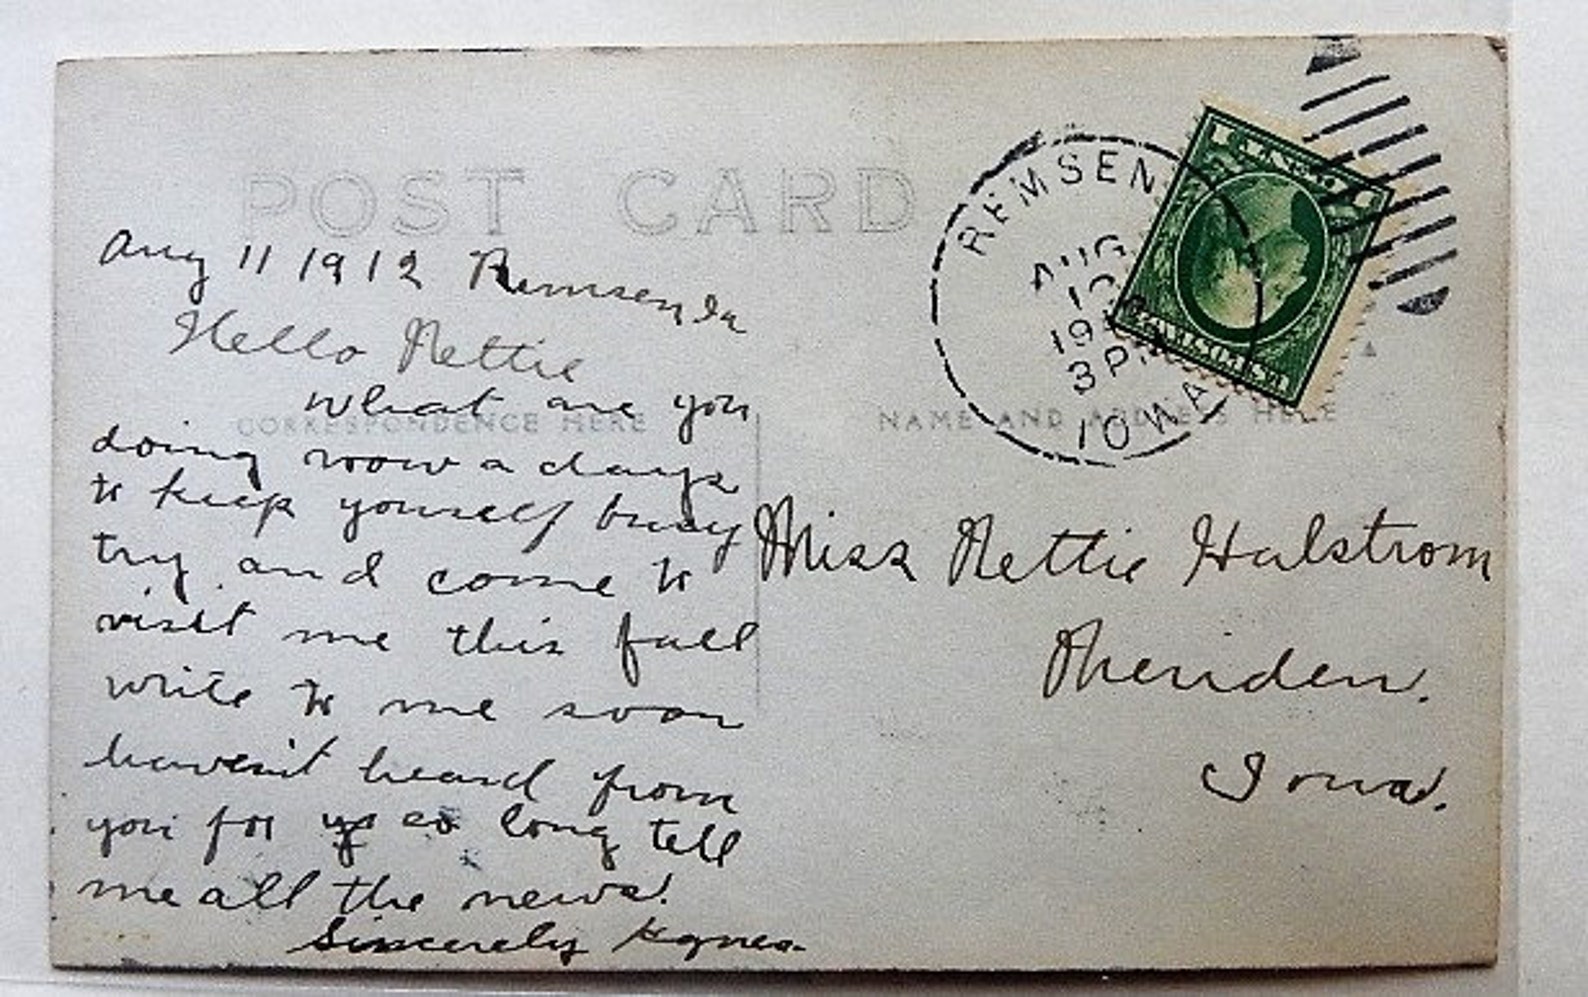 POST CARD
Aug 11 1912 Remsen Ia
Hello Nettie
What are you
CORRESPONDENCE HERE
doing now a days
to keep yourself busy
try and come to
visit me this fall
write to me soon
haven't heard from
you for so long tell
me all the news!
Sincerely Agnes
REMSEN
AUG
3 PM
IOWA
NAME AND ADDRESS HERE
Miss Nettie Halstrom
Meriden.
Iowa.